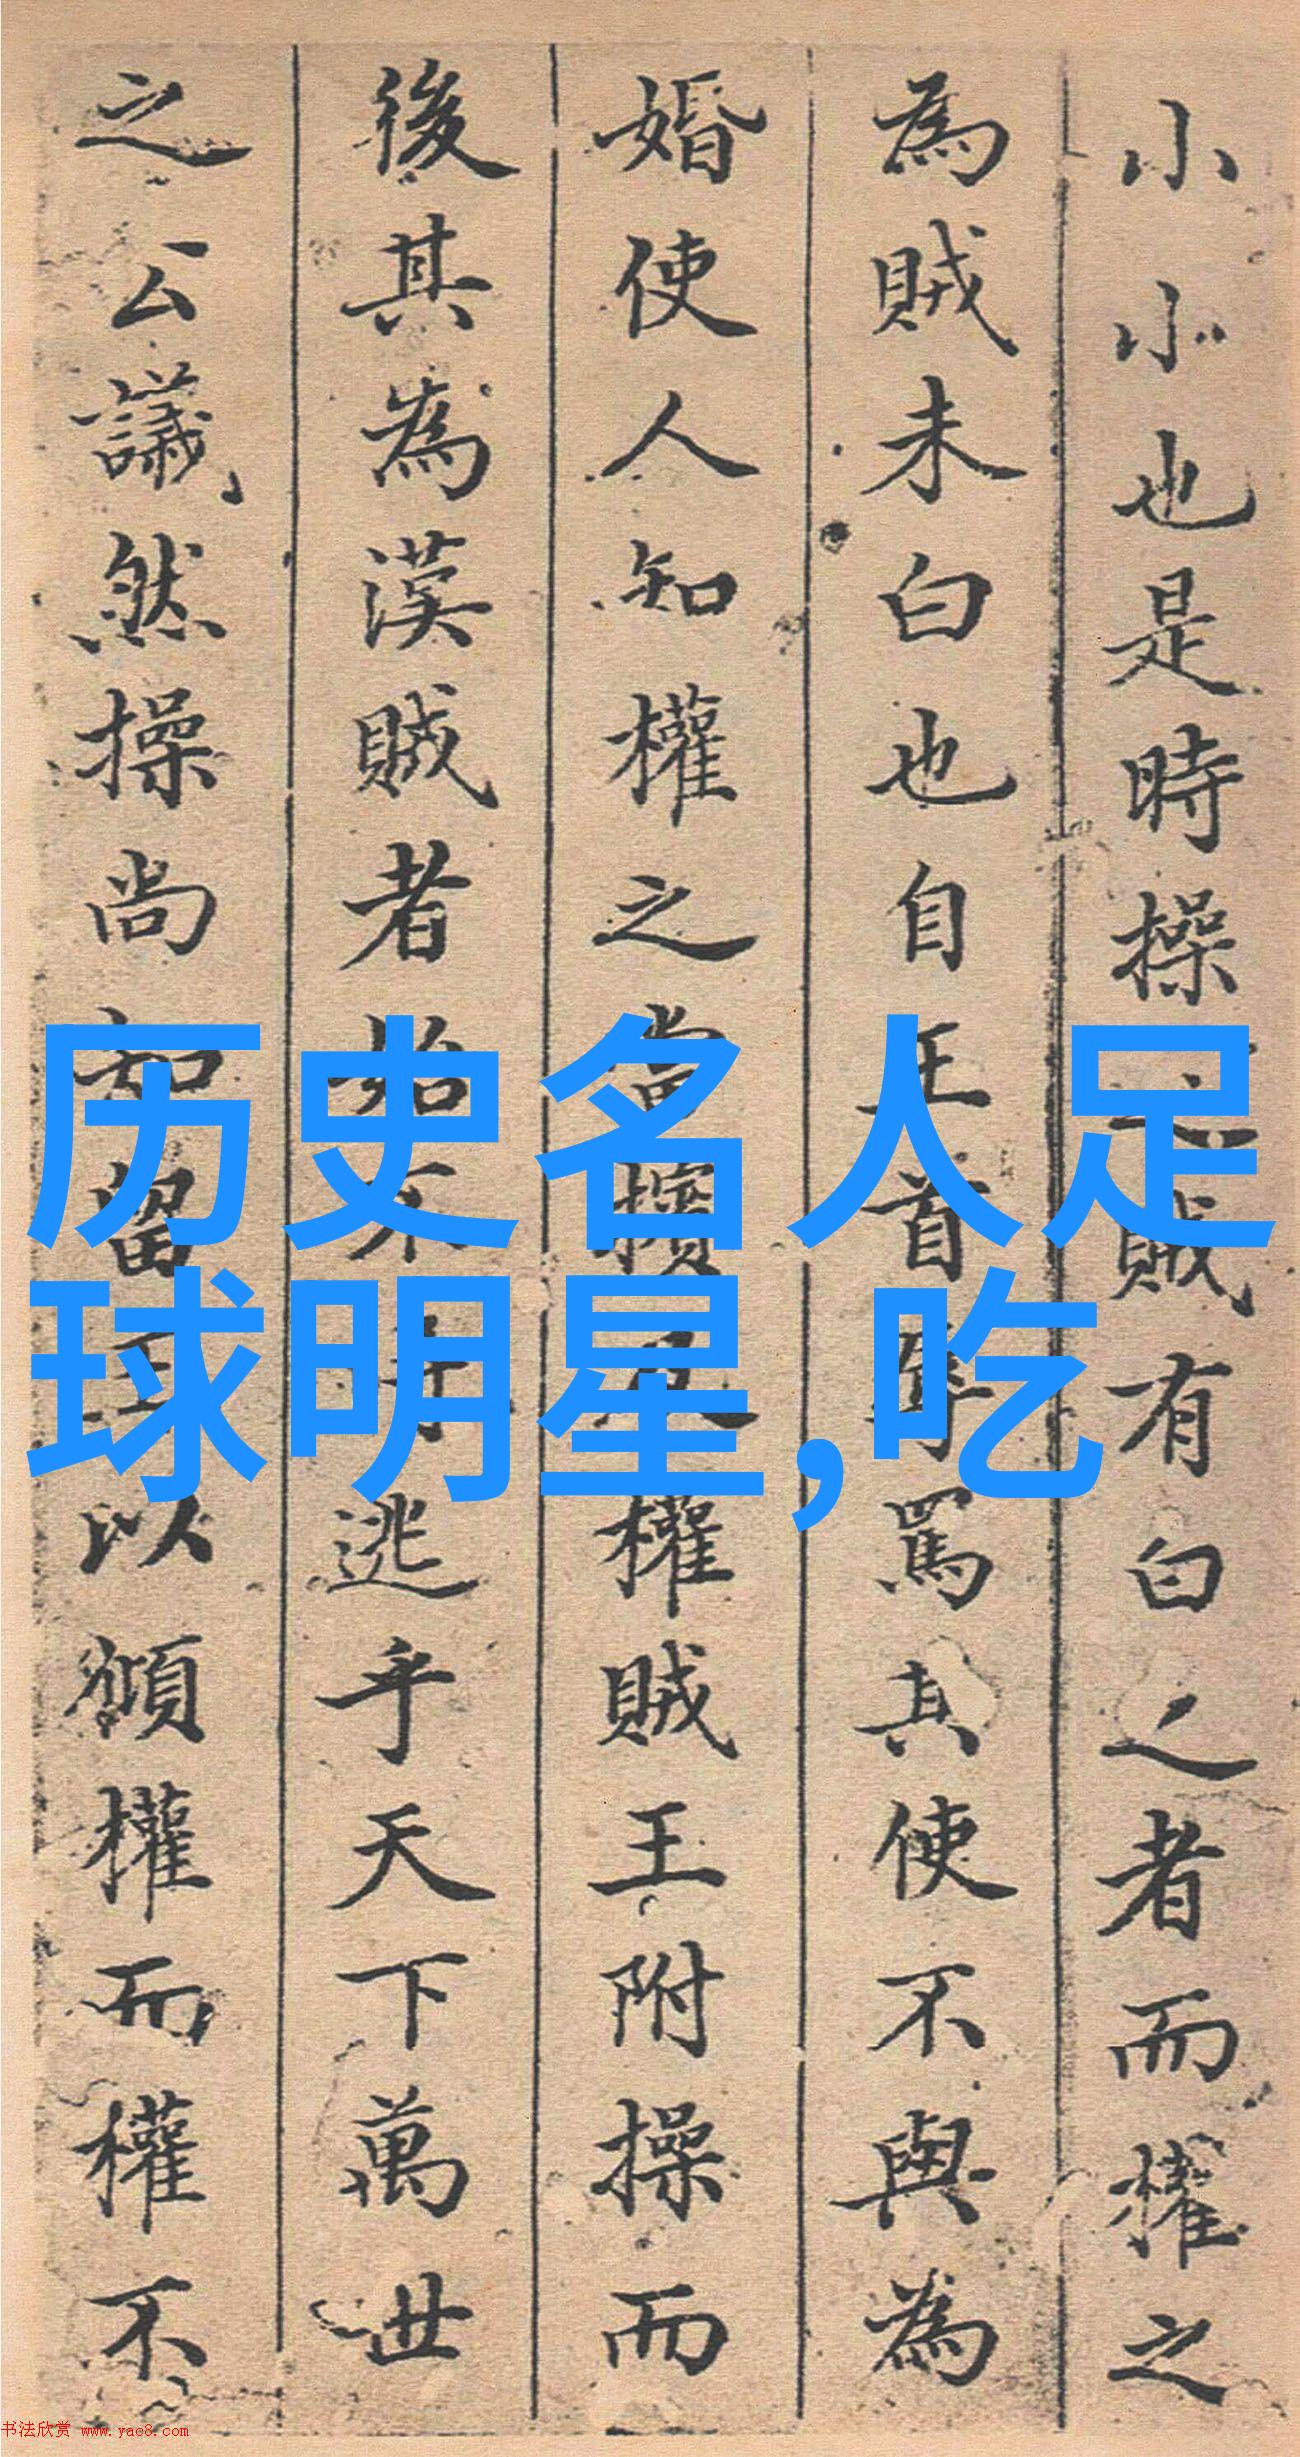 小小也是時操之賊有白之者而權之
為賊未白也自正首年罵其使不與為
婚使人知權之當擯而權賊王附操而
後其為漢賊者始不得逃乎天下萬世
之公議然操尚知留王以順權而權不
历史名人足
球明星,吃
书法欣赏 www.yac8.com